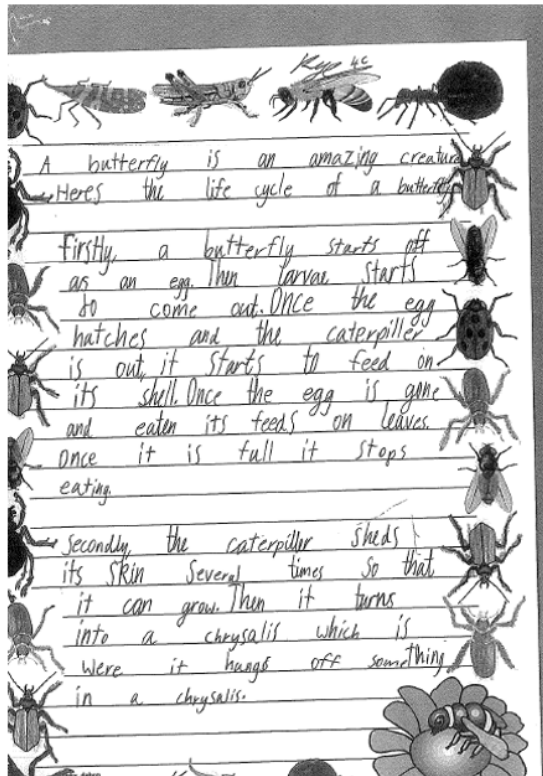 4C
A butterfly is an amazing creature
Heres the life cycle of a butterfly
Firstly, a butterfly starts off
as an egg. Then larvae starts
to come out. Once the egg
hatches and the caterpiller
is out, it starts to feed on
its shell. Once the egg is gone
and eaten its feeds on leaves.
Once it is full it stops
eating.
Secondly, the caterpiller sheds
its skin several times so that
it can grow. Then it turns
into a chrysalis which is
were it hangs off something
in a chrysalis.